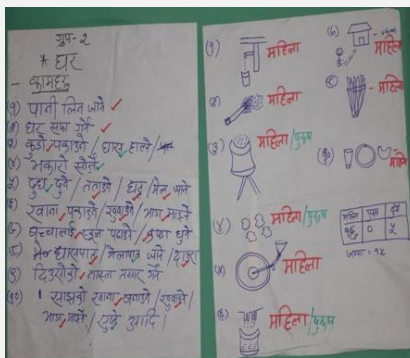 ग्रुप - २
* घर
- कामहरु
(१) पानी लिन जाने
(२) घर सफा गर्ने
(३) कुडो पकाउने / घास हाल्ने /
(४) भकारो सोर्ने
(५) दुध दुने / तताउने /
(६) खाना पकाउने / खुवाउने / भाडा माझ्ने
(७) बच्चालाई स्कुल पठाउने / कपडा धुने
(८) घासपात / मेलापात जाने / दाउरा
(९) दिउसोको खाजा तयार गर्ने
(१०) साझको खाना बनाउने / खुवाउने /
भाडा माझ्ने / सुत्ने आदि ।
(१) महिला
(२) महिला
(३) महिला / पुरुष
(४) महिला / पुरुष
(५) महिला
(६) महिला / पुरुष
महिला
(८) महिला
(१०) महिला
महिला पुरुष दुबै
० ५